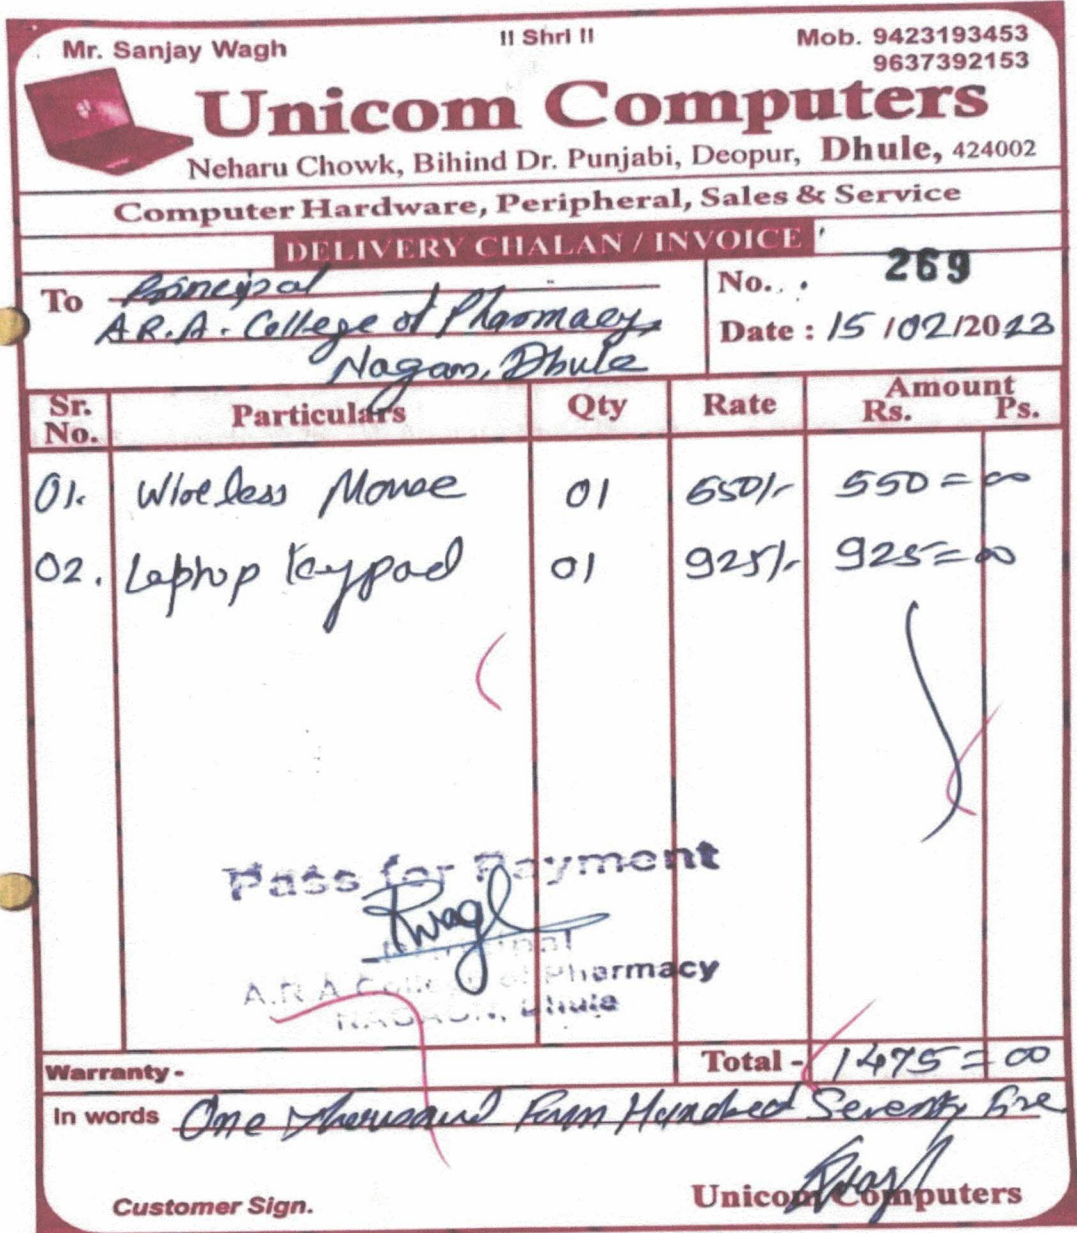 Mr. Sanjay Wagh
!! Shri !!
Mob. 9423193453
9637392153
Unicom Computers
Neharu Chowk, Bihind Dr. Punjabi, Deopur, Dhule, 424002
Computer Hardware, Peripheral, Sales & Service
DELIVERY CHALAN / INVOICE
To Principal
A.R.A. College of Pharmacy,
Nagaon, Dhule
No. 269
Date : 15/02/2023
Sr. No. Particulars Qty Rate Amount Rs. Ps.
01. Wireless Mouse 01 550/- 550=00
02. Laptop Keypad 01 925/- 925=00
Pass for Payment
Principal
A.R.A College of Pharmacy
NAGAON, Dhule
Warranty - Total - 1475=00
In words One Thousand Four Hundred Seventy Five
Customer Sign. Unicom Computers